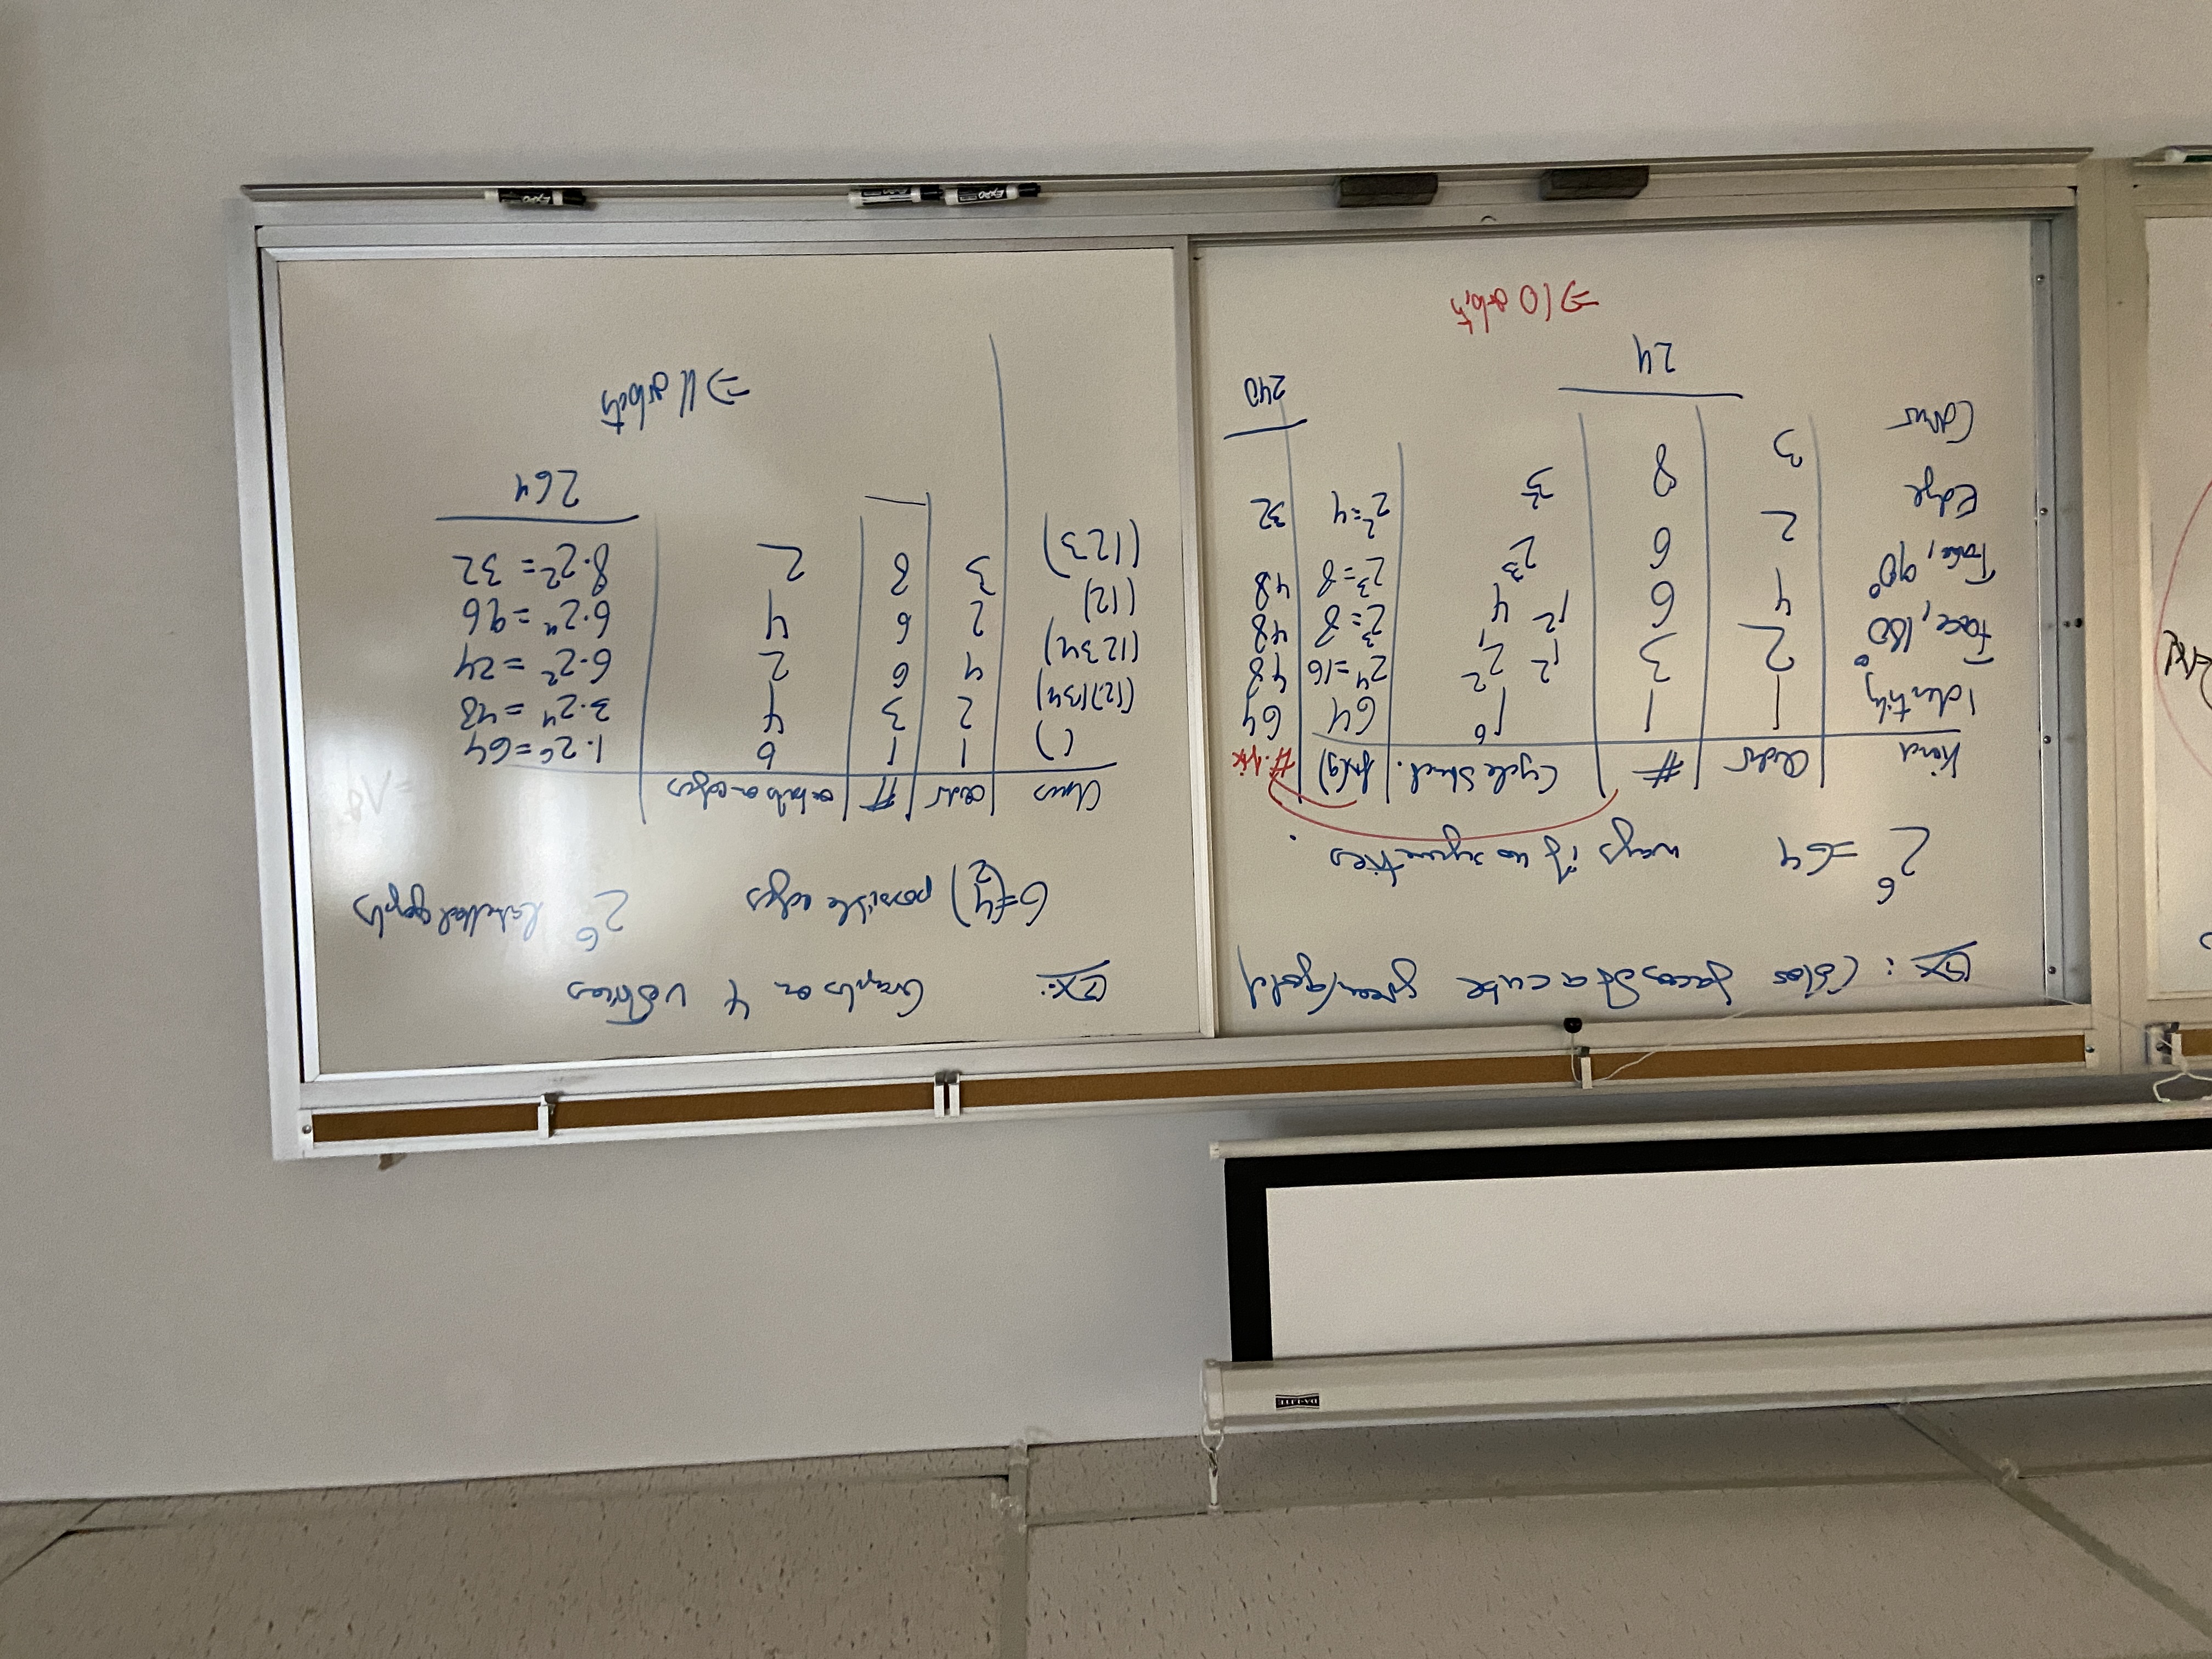 Ex: Color faces of a cube green/gold
2^6 = 64 ways if no symmetries.
Kind | Order | # | Cycle Struct. | fix(g) | #·fix
Identity | 1 | 1 | 1^6 | 64 | 64
Face, 180° | 2 | 3 | 1^2 2^2 | 2^4=16 | 48
Face, 90° | 4 | 6 | 1^2 4^1 | 2^3=8 | 48
Edge | 2 | 6 | 2^3 | 2^3=8 | 48
Corner | 3 | 8 | 3^2 | 2^2=4 | 32
24 240
⇒ 10 orbits
Ex: Graphs on 4 vertices
6=(4 2) possible edges 2^6 labelled graphs
Class | order | # | orbits on edges
( ) | 1 | 1 | 6 | 1·2^6=64
(12)(34) | 2 | 3 | 4 | 3·2^4=48
(1234) | 4 | 6 | 2 | 6·2^2=24
(12) | 2 | 6 | 4 | 6·2^4=96
(123) | 3 | 8 | 2 | 8·2^2=32
264
⇒ 11 orbits
EXPO
EXPO
DA-LITE